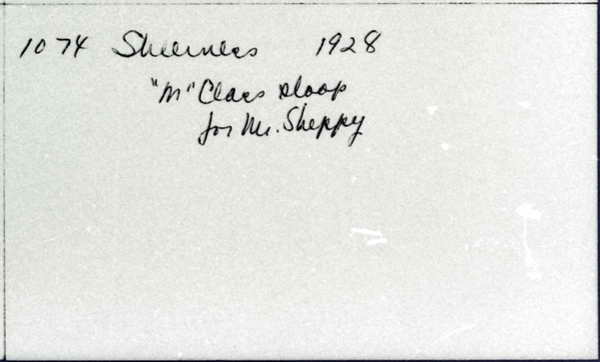 1074 Sheerness 1928
"M" Class sloop
for Mr. Sheppy